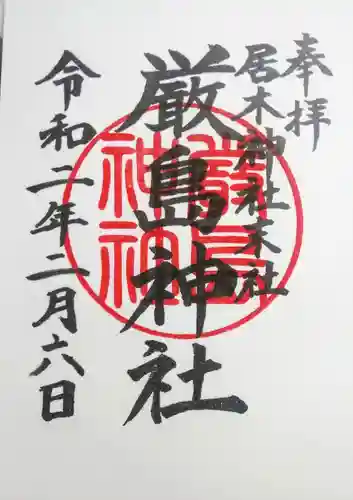 奉拝
居木神社末社
厳島神社
令和二年二月六日